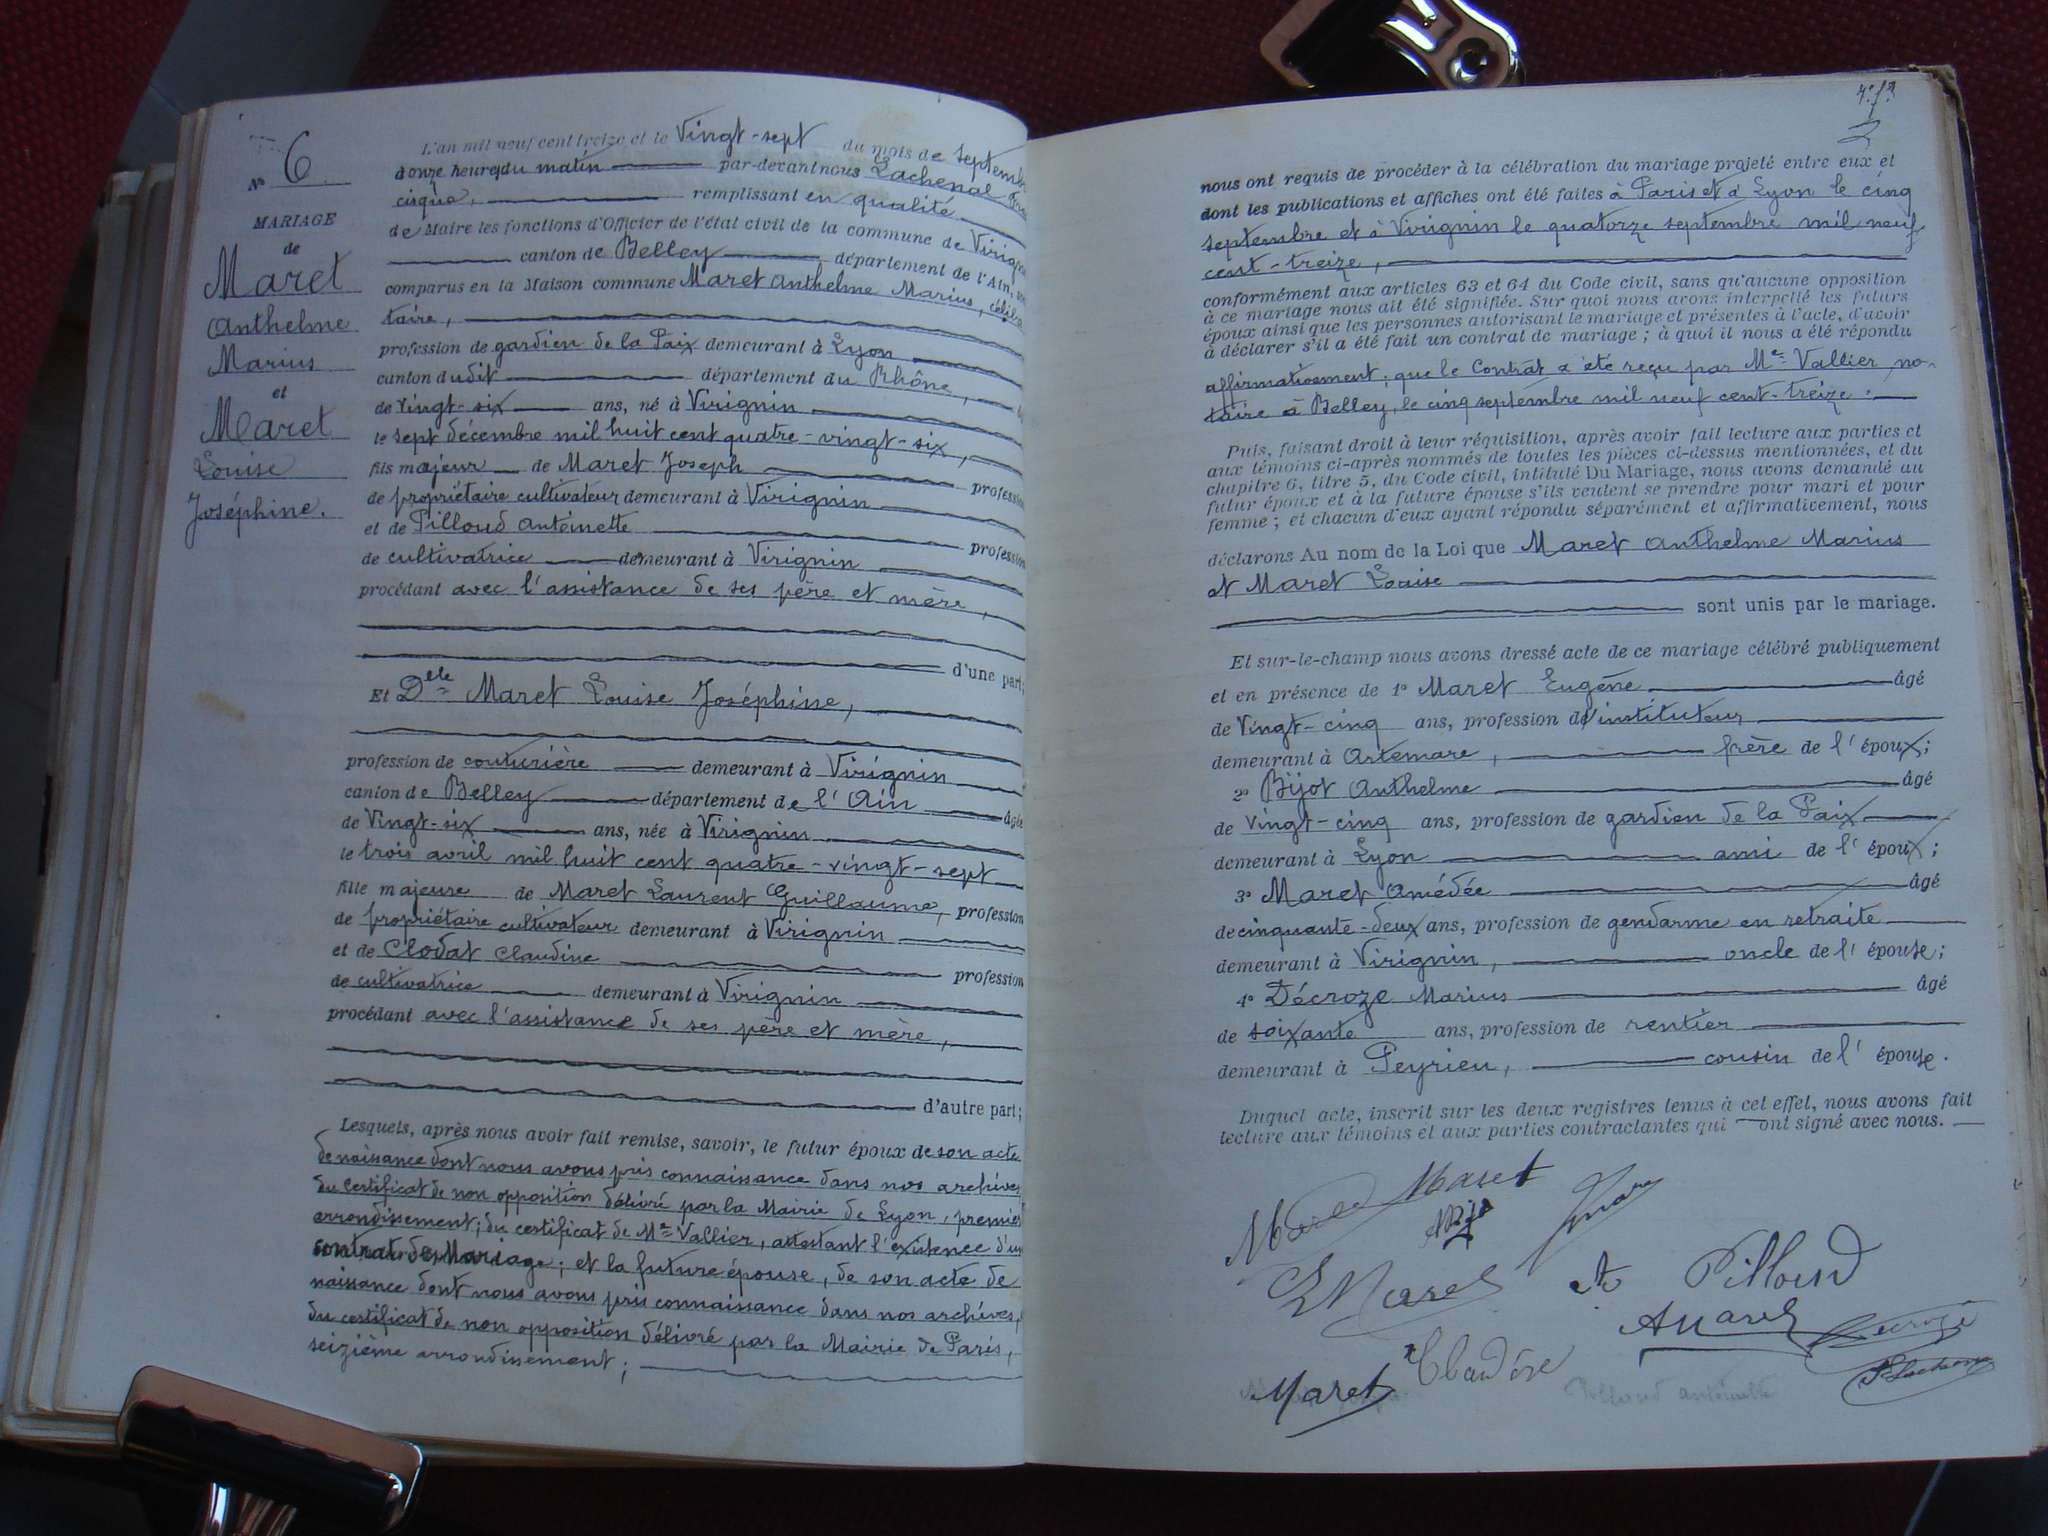 N° 6
MARIAGE
de
Maret
Anthelme
Marius
et
Maret
Louise
Joséphine.
L'an mil neuf cent treize et le Vingt-sept du mois de Septembre
à onze heures du matin par-devant nous Lachenal
cisque, remplissant en qualité
de Maire les fonctions d'Officier de l'état civil de la commune de Virignin
canton de Belley département de l'Ain,
comparus en la Maison commune Maret Anthelme Marius, céliba
taire,
profession de gardien de la Paix demeurant à Lyon
canton dudit département du Rhône,
de vingt-six ans, né à Virignin
le sept décembre mil huit cent quatre-vingt-six,
fils majeur de Maret Joseph profession
de propriétaire cultivateur demeurant à Virignin
et de Pilloud Antéinette profession
de cultivatrice demeurant à Virignin
procédant avec l'assistance de ses père et mère,
d'une part;
Et Delle Maret Louise Joséphine,
profession de couturière demeurant à Virignin
canton de Belley département de l'Ain âgée
de Vingt-six ans, née à Virignin
le trois avril mil huit cent quatre-vingt-sept
fille majeure de Maret Laurent Guillaume, profession
de propriétaire cultivateur demeurant à Virignin
et de Clodat Claudine profession
de cultivatrice demeurant à Virignin
procédant avec l'assistance de ses père et mère,
d'autre part;
Lesquels, après nous avoir fait remise, savoir, le futur époux de son acte
de naissance dont nous avons pris connaissance dans nos archives
du certificat de non opposition délivré par la Mairie de Lyon, premier
arrondissement; du certificat de Me Vallier, attestant l'existence d'un
contrat de Mariage; et la future épouse, de son acte de
naissance dont nous avons pris connaissance dans nos archives,
du certificat de non opposition délivré par la Mairie de Paris,
seizième arrondissement;
nous ont requis de procéder à la célébration du mariage projeté entre eux et
dont les publications et affiches ont été faites à Paris et à Lyon le cinq
septembre et à Virignin le quatorze septembre mil neuf
cent-treize,
conformément aux articles 63 et 64 du Code civil, sans qu'aucune opposition
à ce mariage nous ait été signifiée. Sur quoi nous avons interpellé les futurs
époux ainsi que les personnes autorisant le mariage et présentes à l'acte, d'avoir
à déclarer s'il a été fait un contrat de mariage; à quoi il nous a été répondu
affirmativement; que le Contrat a été reçu par Me Vallier, no-
taire à Belley, le cinq septembre mil neuf cent-treize.
Puis, faisant droit à leur réquisition, après avoir fait lecture aux parties et
aux témoins ci-après nommés de toutes les pièces ci-dessus mentionnées, et du
chapitre 6, titre 5, du Code civil, intitulé Du Mariage, nous avons demandé au
futur époux et à la future épouse s'ils veulent se prendre pour mari et pour
femme; et chacun d'eux ayant répondu séparément et affirmativement, nous
déclarons Au nom de la Loi que Maret Anthelme Marius
et Maret Louise
sont unis par le mariage.
Et sur-le-champ nous avons dressé acte de ce mariage célébré publiquement
et en présence de 1° Maret Eugène âgé
de Vingt-cinq ans, profession d'instituteur
demeurant à Artemare, frère de l'époux;
2° Bijot Anthelme âgé
de vingt-cinq ans, profession de gardien de la Paix
demeurant à Lyon ami de l'époux;
3° Maret Amédée âgé
de cinquante-deux ans, profession de gendarme en retraite
demeurant à Virignin, oncle de l'épouse;
4° Décroze Marius âgé
de soixante ans, profession de rentier
demeurant à Peyrieu, cousin de l'épouse.
Duquel acte, inscrit sur les deux registres tenus à cet effet, nous avons fait
lecture aux témoins et aux parties contractantes qui ont signé avec nous.
Maret
L Maret
A Pilloud
Décroze
Maret
Pilloud Antéinette